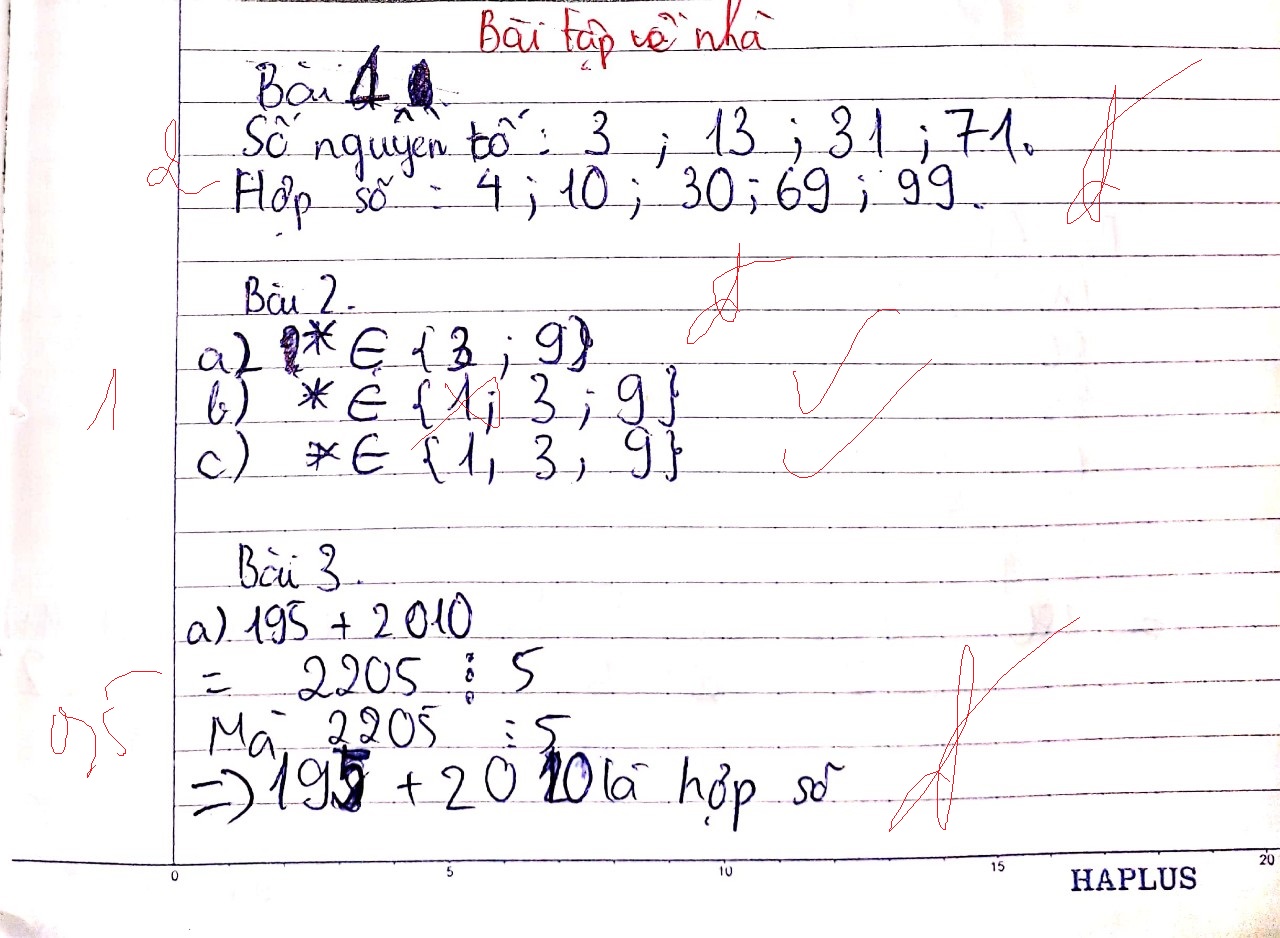 Bài tập về nhà
Bài 1
2
Số nguyên tố : 3 ; 13 ; 31 ; 71.
Hợp số : 4 ; 10 ; 30 ; 69 ; 99.
đ
Bài 2.
đ
a) * ∈ {3 ; 9}
b) * ∈ {1; 3 ; 9}
1
c) * ∈ {1, 3 ; 9}
Bài 3.
a) 195 + 2010
= 2205 ⋮ 5
0,5
Mà 2205 ⋮ 5
=> 195 + 2010 là hợp số
đ
0 5 10 15 20
HAPLUS